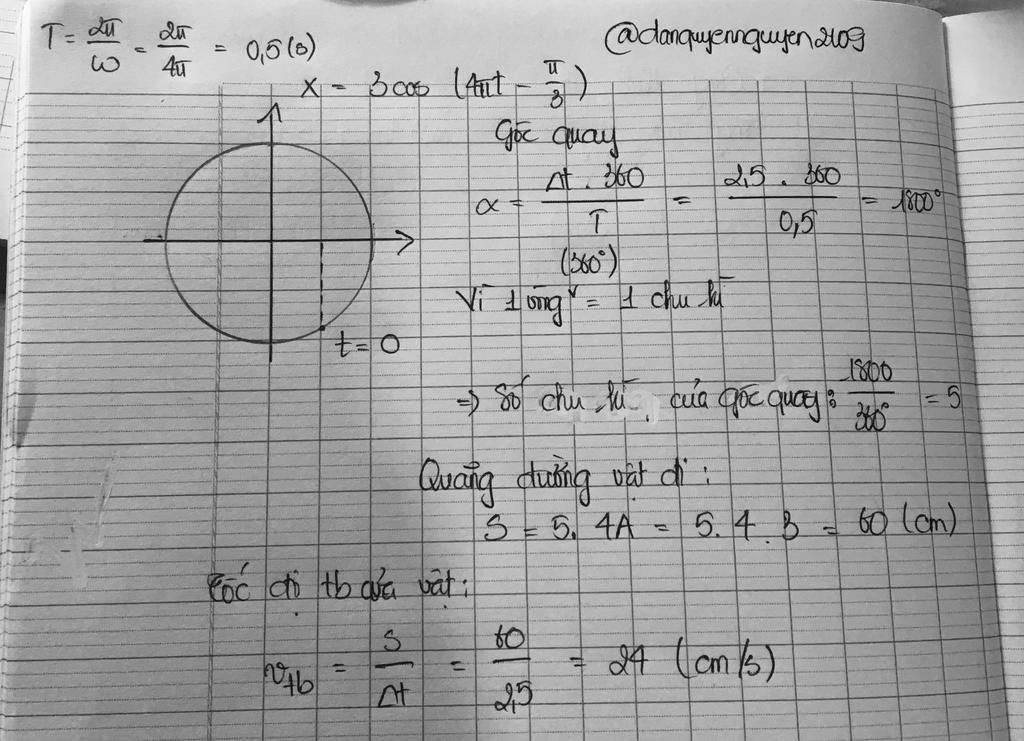 T = 2π/ω = 2π/4π = 0,5 (s)
@danquyennguyen2109
x = 3cos (4πt - π/3)
Góc quay
α = Δt . 360 / T = 2,5 . 360 / 0,5 = 1800°
(360°)
Vì 1 vòng = 1 chu kì
t = 0
=> Số chu kì của góc quay: 1800/360° = 5
Quãng đường vật đi :
S = 5. 4A = 5. 4 . 3 = 60 (cm)
Tốc độ tb của vật :
vtb = S/Δt = 60/2,5 = 24 (cm/s)